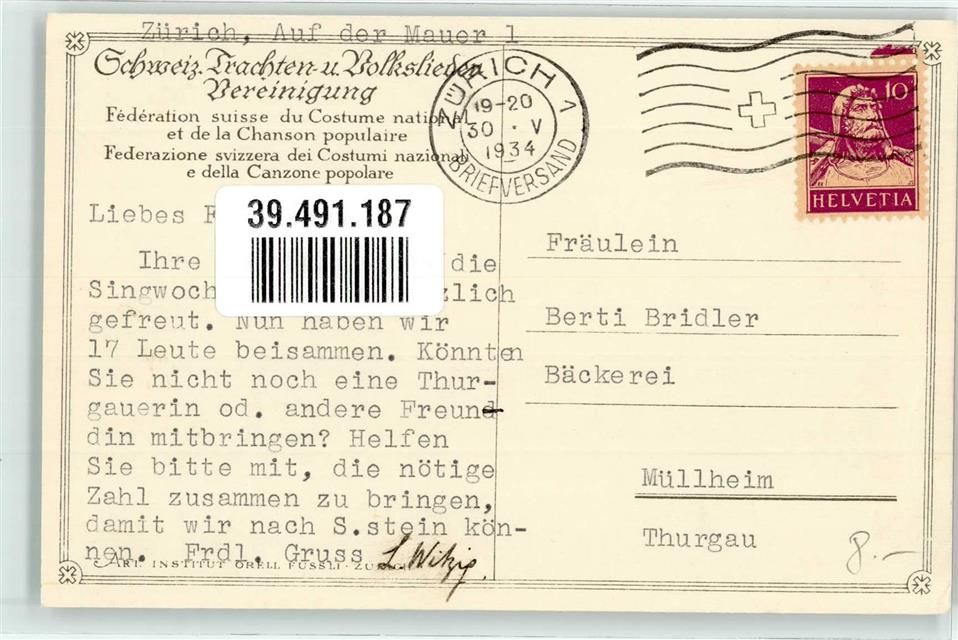 Zürich, Auf der Mauer 1
Schweiz. Trachten- u. Volkslieder
Vereinigung
Fédération suisse du Costume national
et de la Chanson populaire
Federazione svizzera dei Costumi nazionali
e della Canzone popolare
ZÜRICH 1
19-20
30 · V
1934
BRIEFVERSAND
10
HELVETIA
39.491.187
Liebes F
Ihre die
Singwoch zlich
gefreut. Nun haben wir
17 Leute beisammen. Könnten
Sie nicht noch eine Thur-
gauerin od. andere Freund-
din mitbringen? Helfen
Sie bitte mit, die nötige
Zahl zusammen zu bringen,
damit wir nach S.stein kön-
nen. Frdl. Gruss L Witzig.
ART. INSTITUT ORELL FÜSSLI · ZÜRICH
Fräulein
Berti Bridler
Bäckerei
Müllheim
Thurgau
8.-